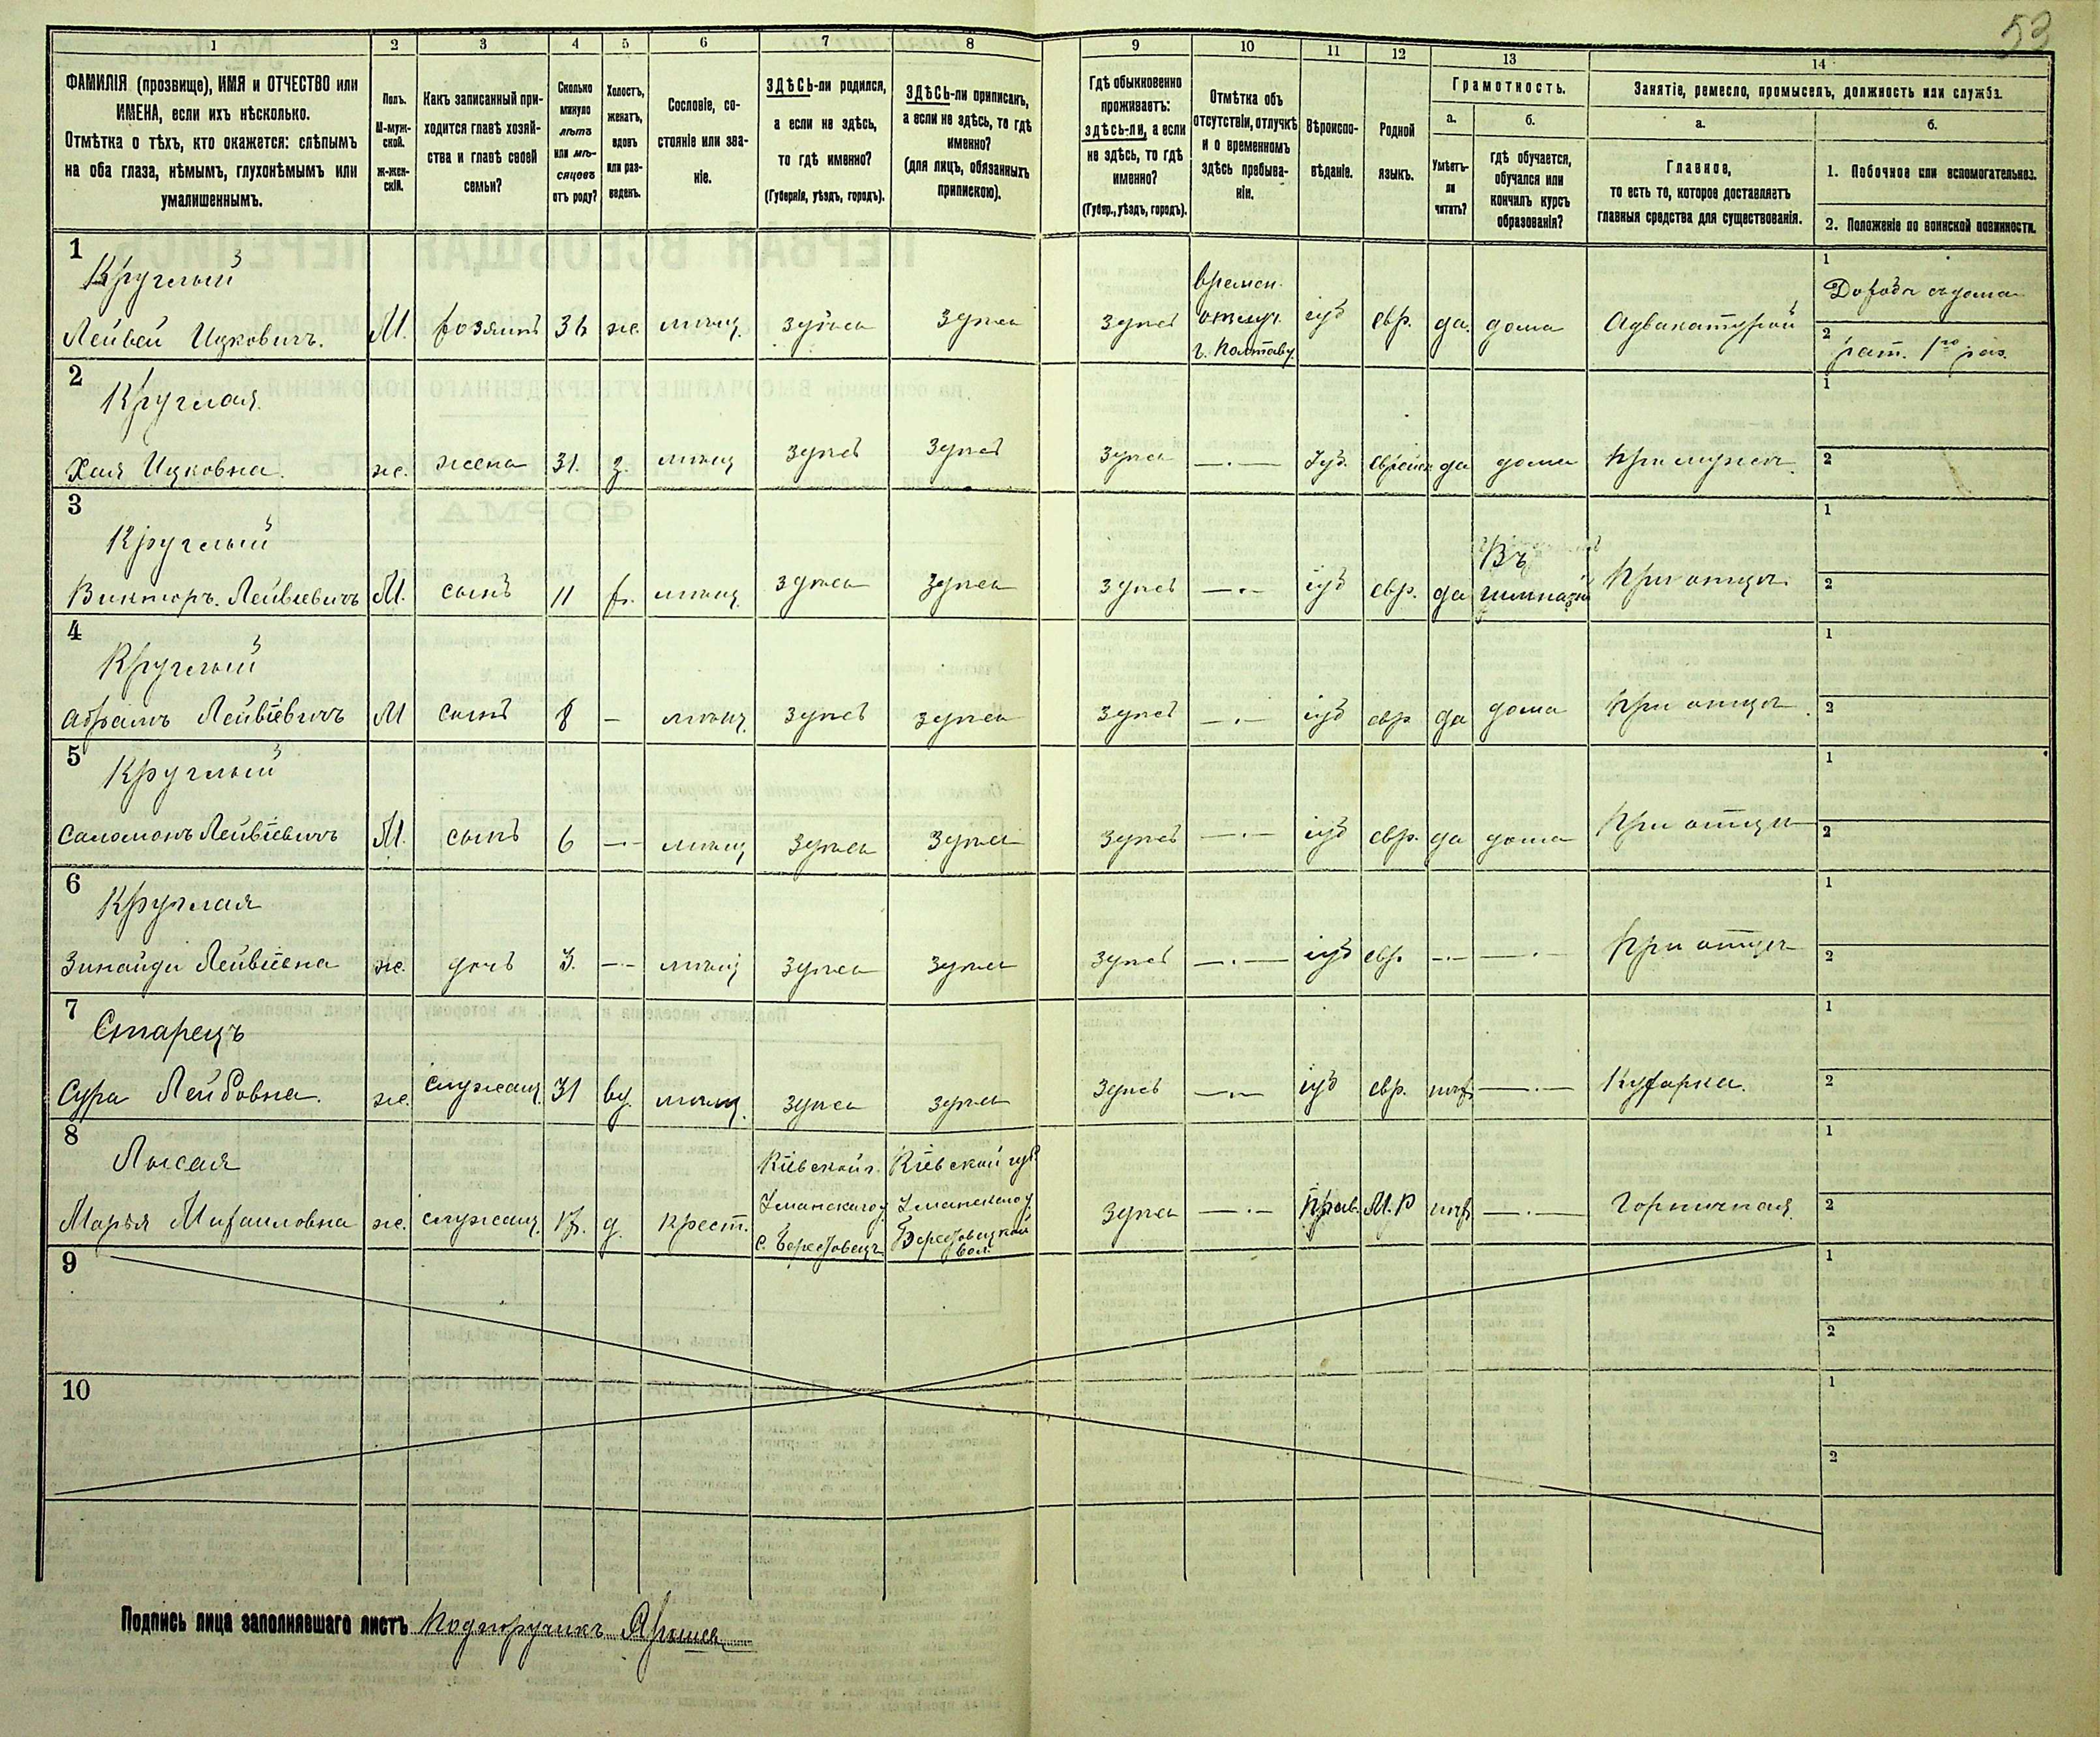 53
1
2
3
4
5
6
7
8
9
10
11
12
13
14
ФАМИЛІЯ (прозвище), ИМЯ и ОТЧЕСТВО или
ИМЕНА, если ихъ нѣсколько.
Отмѣтка о тѣхъ, кто окажется: слѣпымъ
на оба глаза, нѣмымъ, глухонѣмымъ или
умалишеннымъ.
Полъ.
М-муж-
ской.
ж-жен-
скій.
Какъ записанный при-
ходится главѣ хозяй-
ства и главѣ своей
семьи?
Сколько
минуло
лѣтъ
или мѣ-
сяцевъ
отъ роду?
Холостъ,
женатъ,
вдовъ
или раз-
веденъ.
Сословіе, со-
стояніе или зва-
ніе.
ЗДѢСЬ-ли родился,
а если не здѣсь,
то гдѣ именно?
(Губернія, уѣздъ, городъ).
ЗДѢСЬ-ли приписанъ,
а если не здѣсь, то гдѣ
именно?
(для лицъ, обязанныхъ
припискою).
Гдѣ обыкновенно
проживаетъ:
здѣсь-ли, а если
не здѣсь, то гдѣ
именно?
(Губер., уѣздъ, городъ).
Отмѣтка объ
отсутствіи, отлучкѣ
и о временномъ
здѣсь пребыва-
ніи.
Вѣроиспо-
вѣданіе.
Родной
языкъ.
Грамотность.
а.
б.
Умѣетъ-
ли
читать?
гдѣ обучается,
обучался или
кончилъ курсъ
образованія?
Занятіе, ремесло, промыселъ, должность или служба.
а.
б.
Главное,
то есть то, которое доставляетъ
главныя средства для существованія.
1. Побочное или вспомогательное.
2. Положеніе по воинской повинности.
1
Круглый
Лейвей Ицковичъ.
М. хозяинъ 36 ж. мѣщ. здѣсь здѣсь здѣсь
времен.
отлуч.
г. Полтаву.
іуд евр. да. дома Адвокатурой
1 Доходъ съ дома
2 рат. 1го раз.
2
Круглая
Хая Ицковна.
ж. жена 31. з. мѣщ здѣсь здѣсь здѣсь —.— Іуд. еврейск да дома При мужѣ.
1
2
3
Круглый
Викторъ. Лейвіевичъ
М. сынъ 11 х. мѣщ. здѣсь здѣсь здѣсь —.— іуд евр. да
Въ
гимназіи
При отцѣ.
1
2
4
Круглый
Абрамъ Лейвіевичъ
М сынъ 8 – мѣщ. здѣсь здѣсь здѣсь —.— іуд евр да дома При отцѣ.
1
2
5
Круглый
Саломонъ Лейвіевичъ
М. сынъ 6 —.— мѣщ здѣсь здѣсь здѣсь —.— іуд евр. да дома При отцѣ
1
2
6
Круглая
Зинаида Лейвіевна
ж. дочь 3. —.— мѣщ здѣсь здѣсь здѣсь —.— іуд евр. —.— —.— При отцѣ
1
2
7
Старецъ
Сура Лейбовна.
ж. служащ. 31 вд. мѣщ. здѣсь здѣсь здѣсь —.— іуд евр. нѣт —.— Кухарка.
1
2
8
Лысая
Марья Михаиловна
ж. служащ. д. крест.
Кіевской г.
Уманскаго у.
с. Берестовецъ
Кіевской губ
Уманскаго у.
Берестовецкой
вол.
здѣсь —.— Прав. М.Р нѣт —.— Горничная.
1
2
9
1
2
10
1
2
Подпись лица заполнявшаго листъ Подпоручикъ